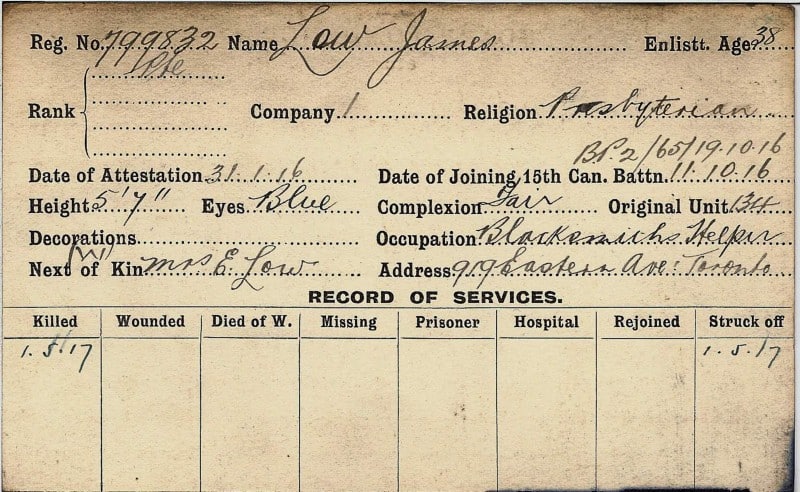 Reg. No. 799832 Name Low James Enlistt. Age 38
Pte
Rank Company 1 Religion Presbyterian
B.P. 2/65/19.10.16
Date of Attestation 31.1.16 Date of Joining 15th Can. Battn. 11.10.16
Height 5'7" Eyes Blue Complexion Fair Original Unit 134
Decorations Occupation Blacksmiths Helper
(W)
Next of Kin Mrs E. Low Address 919 Eastern Ave: Toronto
RECORD OF SERVICES.
Killed Wounded Died of W. Missing Prisoner Hospital Rejoined Struck off
1.5.17 1.5.17